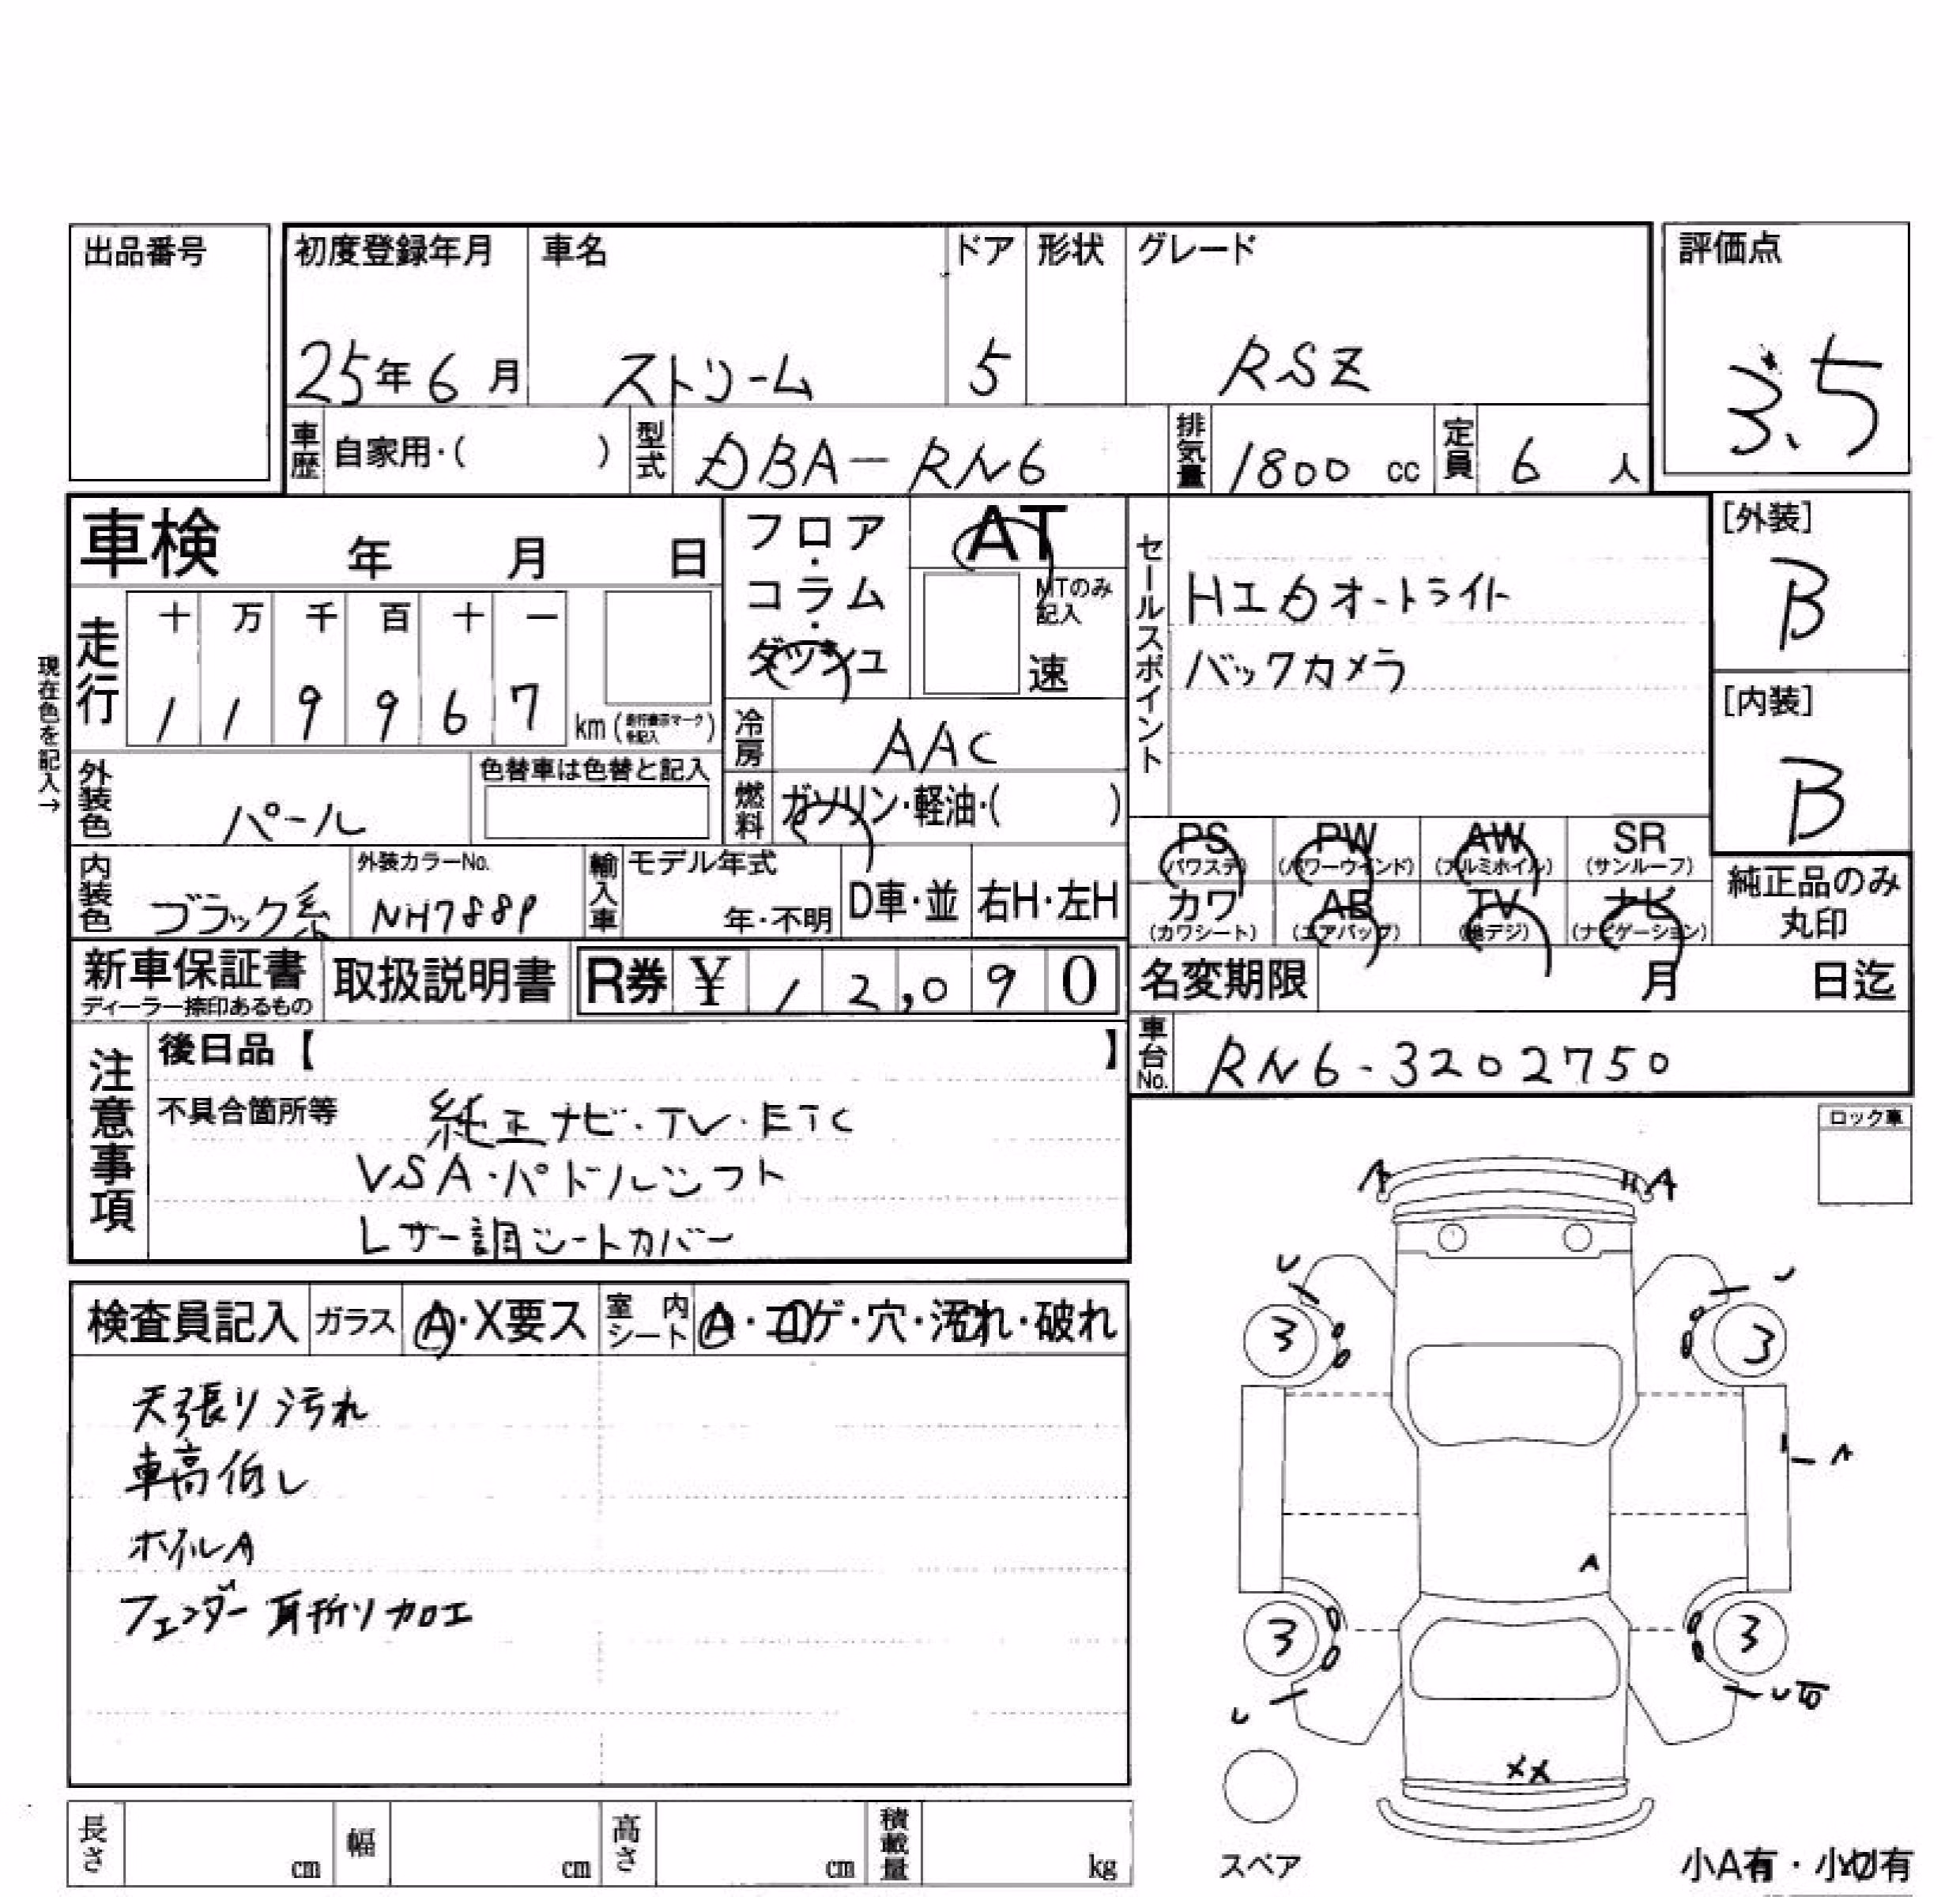 出品番号
初度登録年月 車名 ドア 形状 グレード 評価点
25年6月 ストリーム 5 RSZ 3.5
車歴 自家用・( ) 型式 DBA-RN6 排気量 1800 cc 定員 6 人
車検 年 月 日
フロア・コラム・ダッシュ
AT
MTのみ記入
速
セールスポイント
HIDオートライト
バックカメラ
[外装]
B
[内装]
B
現在色を記入→
走行 十 万 千 百 十 一
1 1 9 9 6 7 km (走行表示マークを記入)
冷房 AAC
外装色 パール 色替車は色替と記入
燃料 ガソリン・軽油・( )
PS (パワステ) PW (パワーウインド) AW (アルミホイル) SR (サンルーフ)
カワ (カワシート) AB (エアバッグ) TV (地デジ) ナビ (ナビゲーション)
純正品のみ丸印
内装色 ブラック系 外装カラーNo. NH788P 輸入車 モデル年式 年・不明 D車・並 右H・左H
新車保証書 ディーラー捺印あるもの 取扱説明書 R券 ¥ 12,090
名変期限 月 日迄
車台No. RN6-3202750
注意事項
後日品【 】
不具合箇所等 純正ナビ・TV・ETC
VSA・パドルシフト
レザー調シートカバー
ロック車
検査員記入 ガラス A・X要ス 室内シート A・コゲ・穴・汚れ・破れ
天張り汚れ
車高低し
ホイルA
フェンダー耳折り加工
A A
U U
3 3
A
A
3 3
U U
XX
スペア
小A有・小U有
長さ cm 幅 cm 高さ cm 積載量 kg